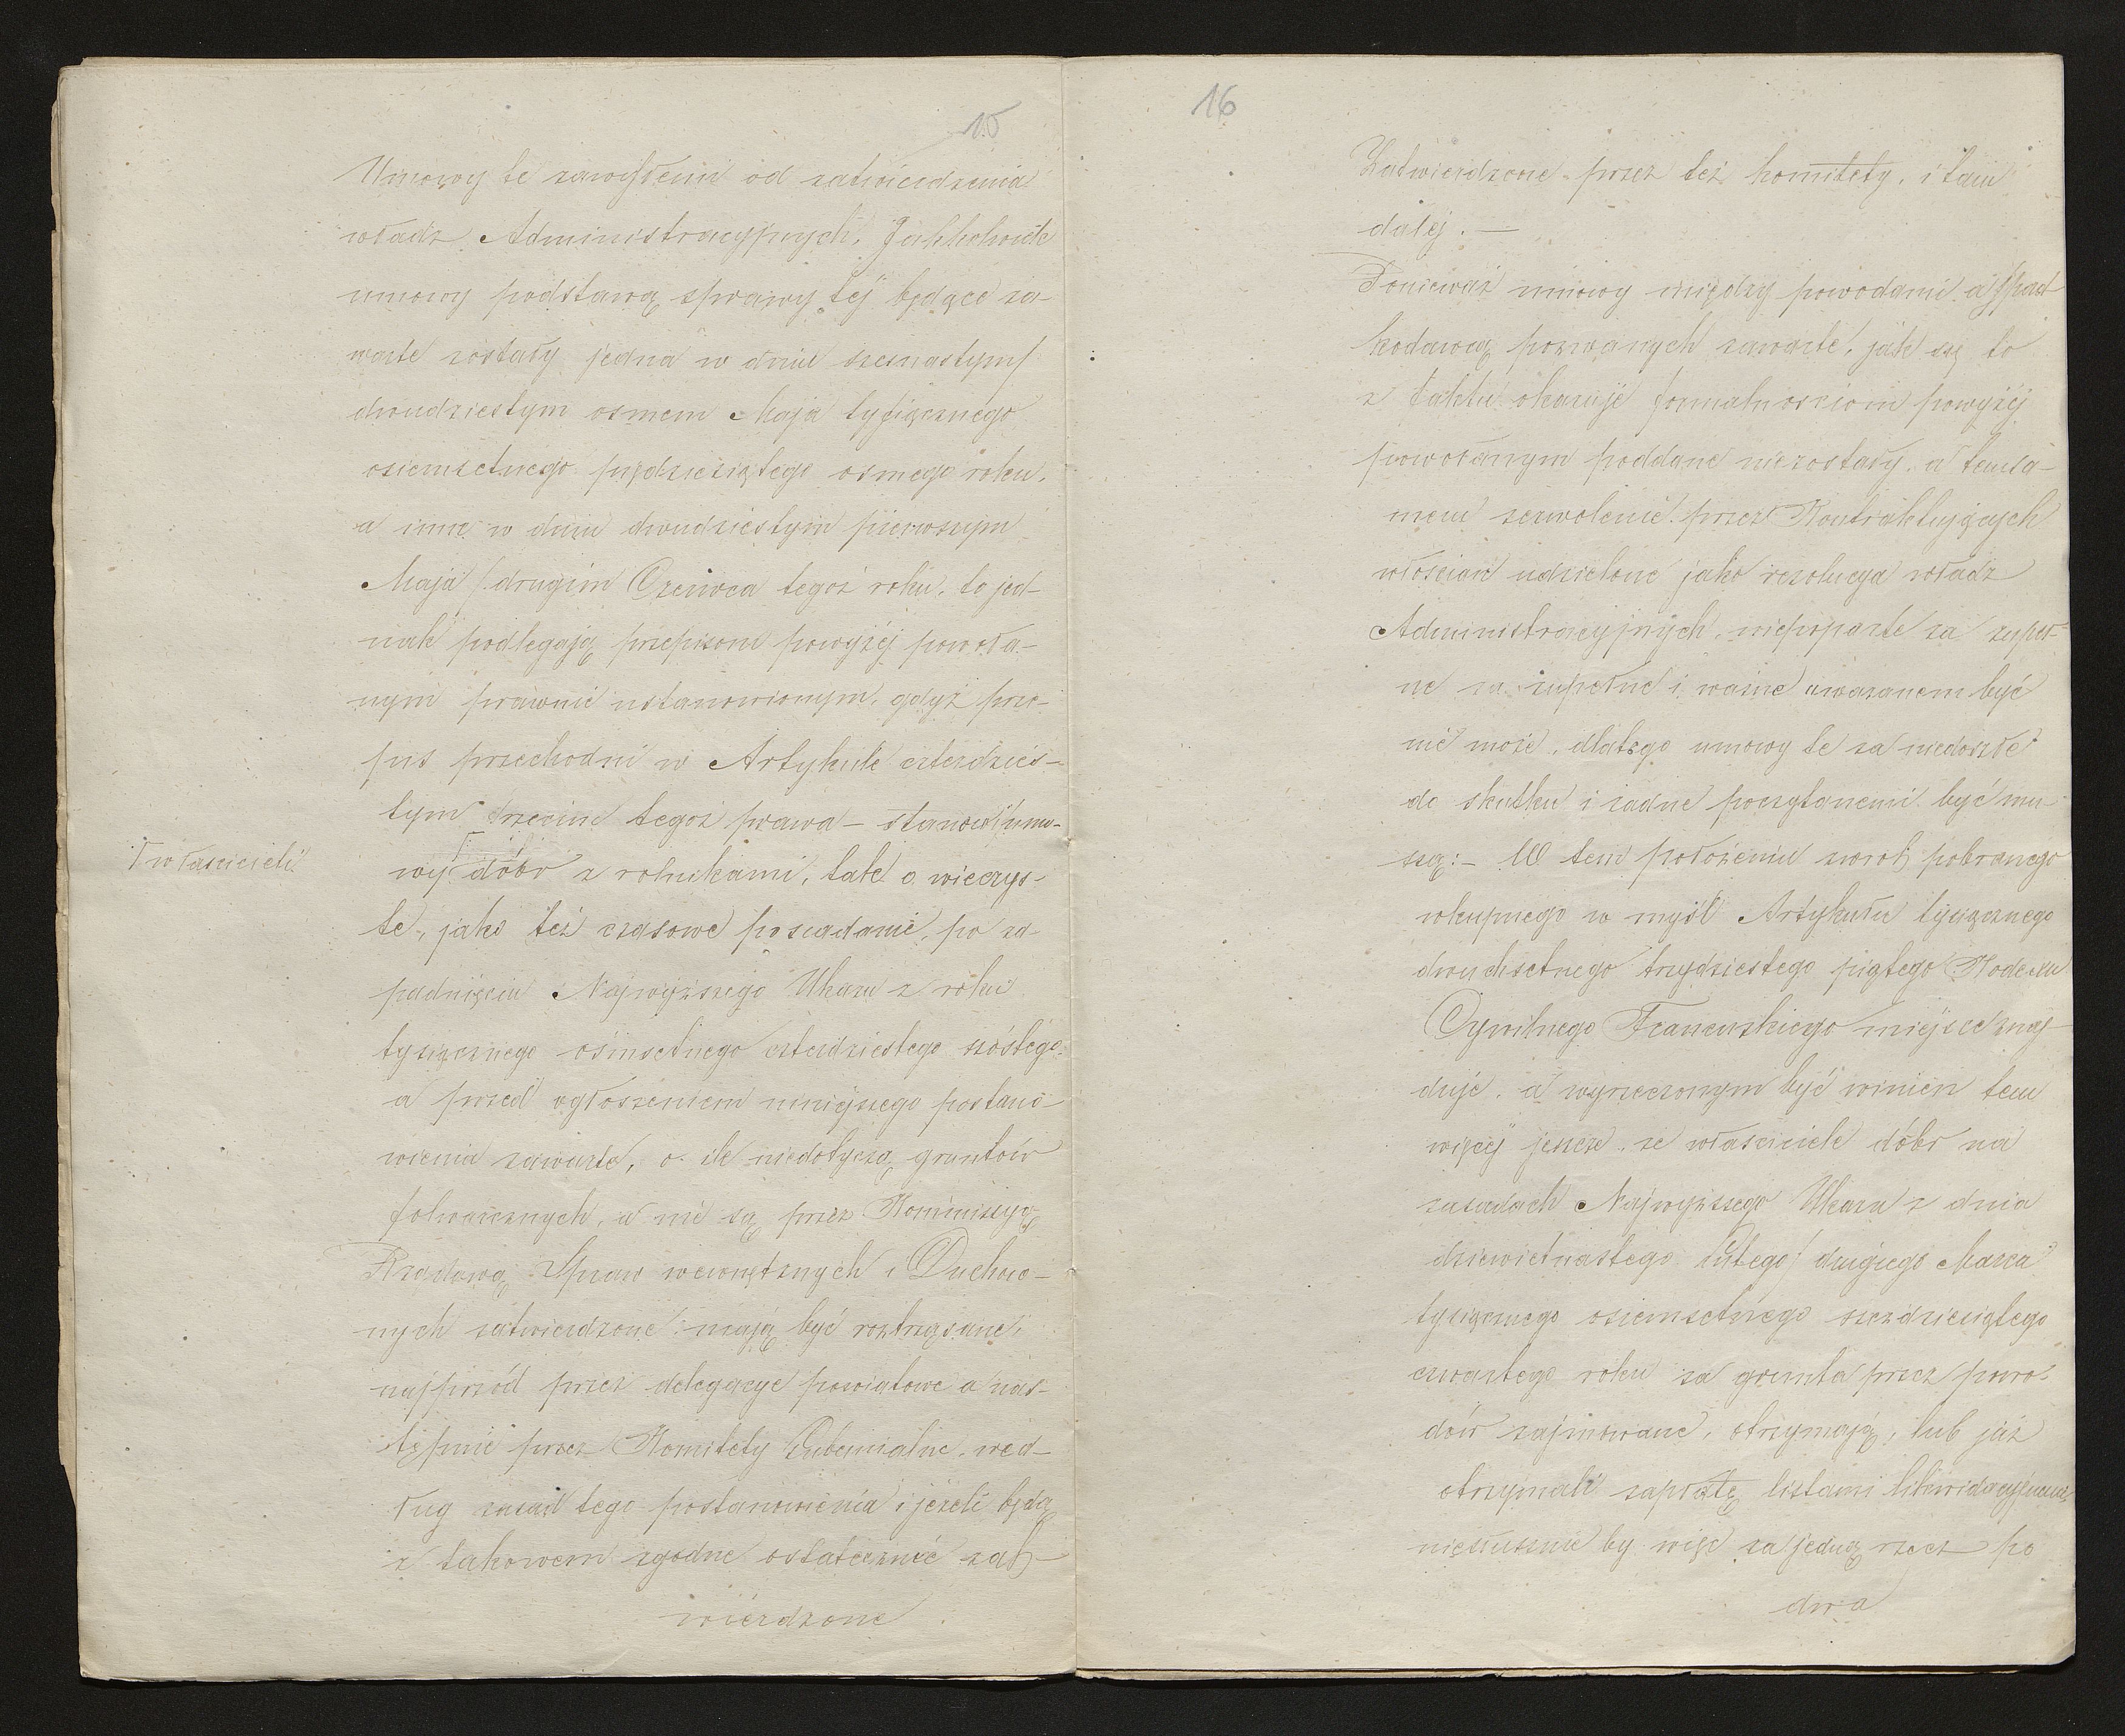 15
Umowy te zawisłemi od zatwierdzenia
władz Administracyjnych. Jakkolwiek
umowy podstawą sprawy tej będące za-
warte zostały jedna w dniu szesnastym/
dwudziestym osmem Maja tysiącznego
osiemsetnego pięćdziesiątego osmego roku,
a inne w dniu dwudziestym pierwszym
Maja /drugim Czerwca tegoż roku, to jed-
nak podlegają przepisom powyżej powoła-
nym prawnie ustanowionym, gdyż prze-
pis przechodni w Artykule czterdzies-
tym trzecim tegoż prawa – stanowi, umo-
wy ⌈ dóbr z rolnikami, tak o wieczys-
⌈właścicieli
te, jako też czasowe posiadanie, po za-
padnięciu Najwyższego Ukazu z roku
tysiącznego ośmsetnego czterdziestego szóstego
a przed ogłoszeniem niniejszego postano-
wienia zawarte, o ile niedotyczą gruntów
folwarcznych, a nie są przez Kommissyą
Rządową Spraw wewnętrznych i Duchow-
nych zatwierdzone mają być roztrząsane
najprzód przez delegacye powiatowe a nas-
tępnie przez Komitety Gubernialne, wed-
ług zasad tego postanowienia i jeżeli będą
z takowem zgodne ostatecznie zat-
wierdzone
16
Zatwierdzone przez też komitety, i tam
dalej. —
Ponieważ umowy między powodami a spad-
kodawcą pozwanych zawarte, jak się to
z faktu okazuje formalnościom powyżej
powołanym poddane niezostały, a temsa-
mem zezwolenie przez Kontraktujących
włościan udzielone jako rezolucya władz
Administracyjnych, niepoparte za zupeł-
ne za zupełne i ważne uważanem być
nie może, dlatego umowy te za niedoszłe
do skutku i żadne poczytanemi być mu-
szą: – W tem położeniu zwrot pobranego
wkupnego w myśl Artykułu tysiącznego
dwuchsetnego trzydziestego piątego Kodexu
Cywilnego Francuskiego miejsce znaj-
duje, a wyrzeczonym być winien tem
więcej jeszcze, że właściciele dóbr na
zasadach Najwyższego Ukazu z dnia
dziewietnastego Lutego/ drugiego Marca
tysiącznego osiemsetnego sześdziesiątego
czwartego roku za grunta przez powo-
dów zajmowane, otrzymają, lub już
otrzymali zapłatę listami likwidacyjnemi,
niesłusznie by więc za jedną rzecz po
dwa